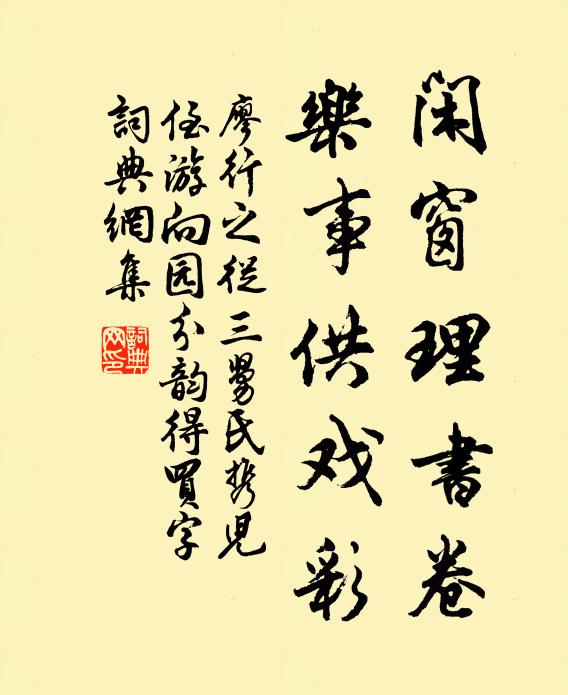 闲窗理書卷
樂事供戏彩
廖行之從三舅氏携児
侄游向园分韵得買字
詞典網集
詞典
网印